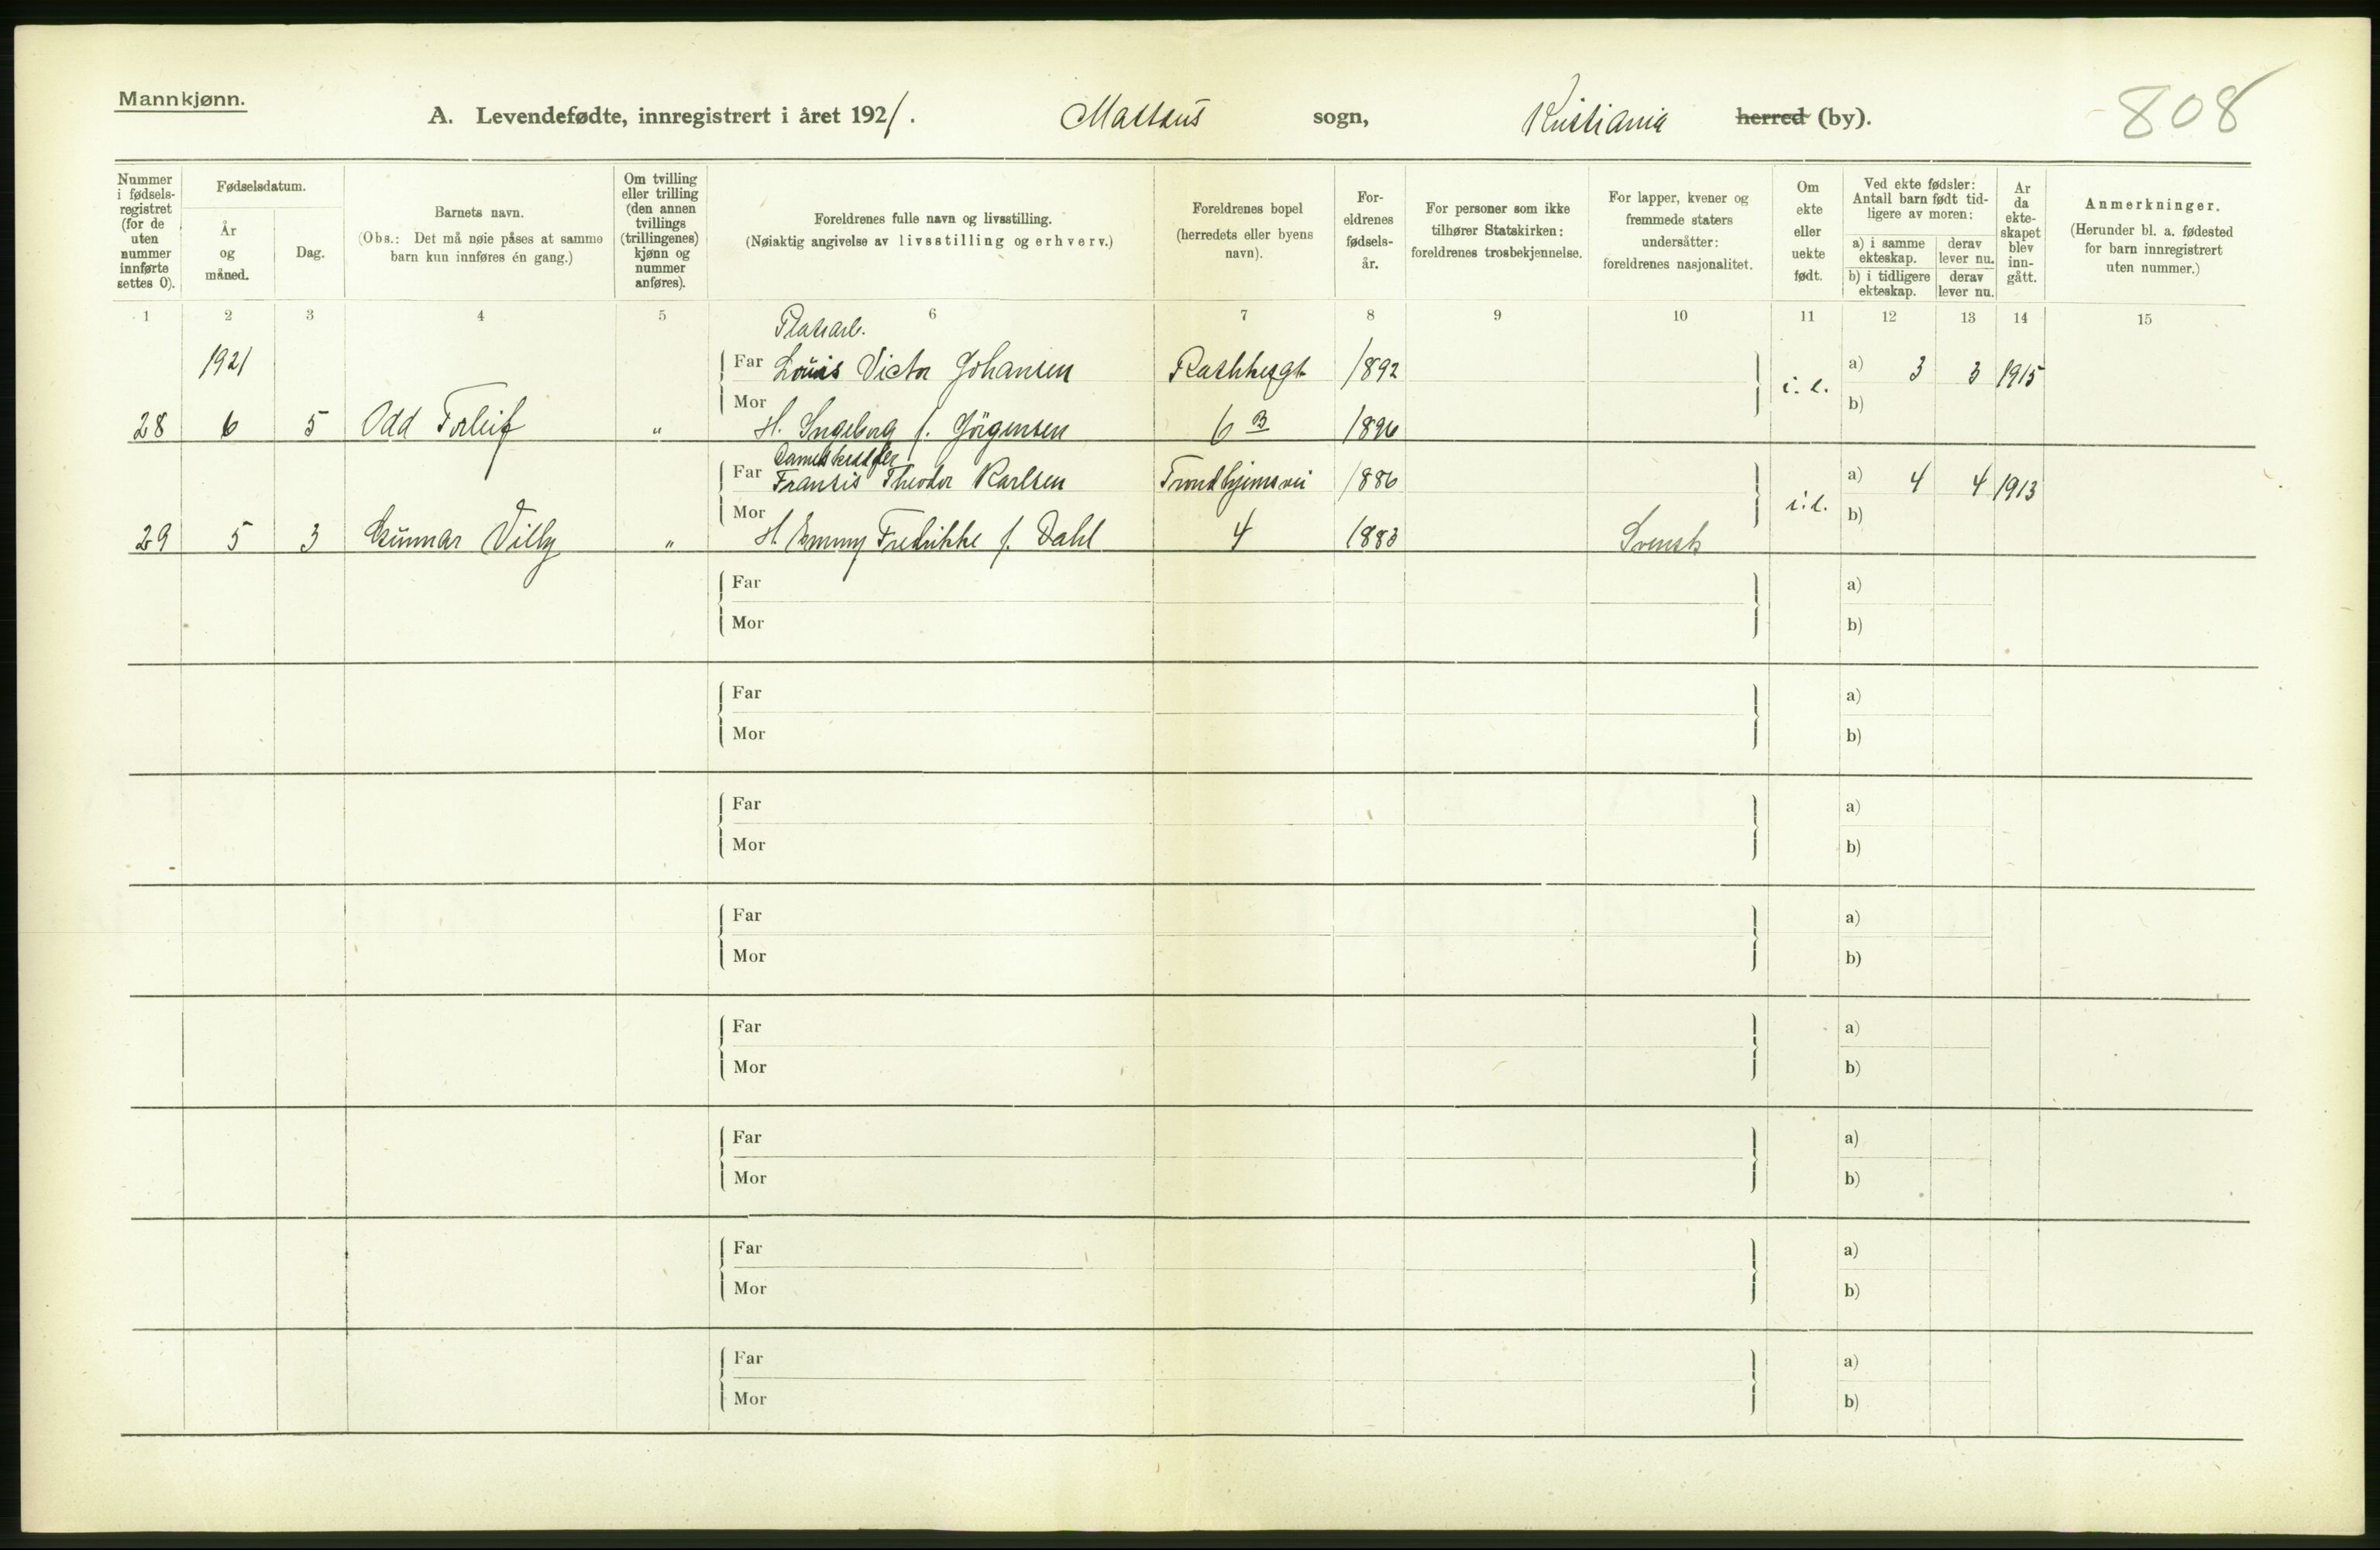 Mannkjønn.
A. Levendefødte, innregistrert i året 1921. Mattæus sogn, Kristiania herred (by). 808
Nummer i fødselsregistret (for de uten nummer innførte settes 0).
Fødselsdatum.
År og måned.
Dag.
Barnets navn.
(Obs.: Det må nøie påses at samme barn kun innføres én gang.)
Om tvilling eller trilling (den annen tvillings (trillingenes) kjønn og nummer anføres).
Foreldrenes fulle navn og livsstilling.
(Nøiaktig angivelse av livsstilling og erhverv.)
Foreldrenes bopel (herredets eller byens navn).
Foreldrenes fødselsår.
For personer som ikke tilhører Statskirken: foreldrenes trosbekjennelse.
For lapper, kvener og fremmede staters undersåtter: foreldrenes nasjonalitet.
Om ekte eller uekte født.
Ved ekte fødsler: Antall barn født tidligere av moren:
a) i samme ekteskap. derav lever nu.
b) i tidligere ekteskap. derav lever nu.
Ar da ekteskapet blev inngått.
Anmerkninger.
(Herunder bl. a. fødested for barn innregistrert uten nummer.)
1 2 3 4 5 6 7 8 9 10 11 12 13 14 15
Platsarb.
1921 Far Louis Victor Johansen 1892 a) 3 3 1915
Mor i. e. b)
28 6 5 Odd Torleif " H. Ingeborg f. Jörgensen 6 B 1896
Far Fransis Theodor Karlsen Trondhjemsvei 1886 a) 4 4 1913
Mor i. e. b)
29 5 3 Gunnar Villy " H. Emmy Fredrikke f. Dahl 4 1883 Svensk
Far a)
Mor b)
Far a)
Mor b)
Far a)
Mor b)
Far a)
Mor b)
Far a)
Mor b)
Far a)
Mor b)
Far a)
Mor b)
Far a)
Mor b)